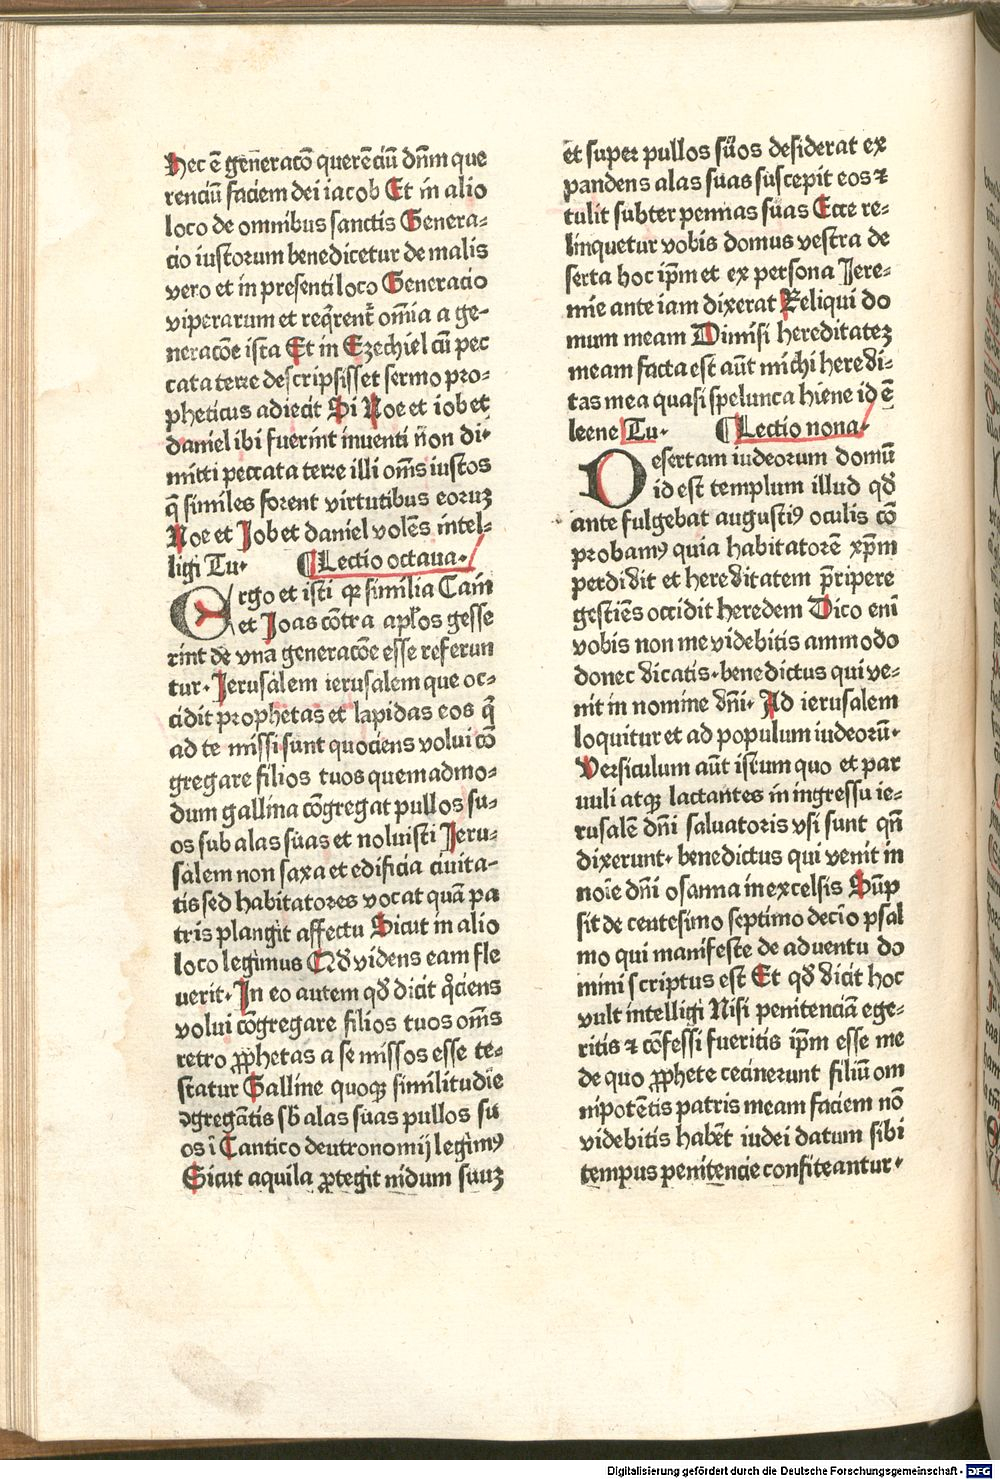 Hec ē gen̄eracōꝫ querēciū dn̄m que
renciū faciem dei iacob Et in alio
loco de omnibus sanctis Genera⸗
cio iustorum benedicetur de malis
vero et in presenti loco Generacio
viperarum et reqͥrent̄ᷣ om̄ia a ge⸗
neracōe ista Et in Ezechiel cū pec
cata terre descripsisset sermo pro⸗
pheticus adiecit Si Noe et iob et
daniel ibi fuerint inuenti n̄on di⸗
mitti peccata terre illi om̄s iustos
q̄ similes forent virtutibus eoruꝫ
Noe et Job et daniel volēs intel⸗
ligi Tu· ¶ Lectio octaua·
Ergo et isti qꝛ similia Cain
et Joas cōtra apl̄os gesse
rint de vna generacōe esse referun
tur· Jerusalem ierusalem que oc⸗
cidit prophetas et lapidas eos q̄
ad te missi sunt quociens volui cō
gregare filios tuos quemadmo⸗
dum gallina cōgregat pullos su⸗
os sub alas suas et noluisti Jeru⸗
salem non saxa et edificia ciuita⸗
tis sed habitatores vocat quā pa
tris plangit affectu Sicut in alio
loco legimus Qd̄ videns eam fle
uerit· In eo autem qd̄ dicit qͦciens
volui cōgregare filios tuos om̄s
retro ꝓphetas a se missos esse te⸗
statur Galline quoqꝫ similitudīe
ꝯgregātis sb̄ alas suas pullos su
os ī Cantico deutronomij legimꝰ
Sicut aquila ꝓtegit nidum suuꝫ
et super pullos suos desiderat ex
pandens alas suas suscepit eos ⁊
tulit subter pennas suas Ecce re⸗
linquetur vobis domus vestra de
serta hoc ip̄m et ex persona Jere⸗
mie ante iam dixerat Reliqui do
mum meam Dimisi hereditateꝫ
meam facta est aūt michi heredi⸗
tas mea quasi spelunca hiene id ē
leene Tu· ¶ Lectio nona·
Desertam iudeorum domū
id est templum illud qd̄
ante fulgebat augustiꝰ oculis cō
probamꝰ quia habitatorē xp̄m
perdidit et hereditatem p̄ripere
gestiēs occidit heredem Dico eni
vobis non me videbitis ammodo
donec dicatis· benedictus qui ve⸗
nit in nomine dn̄i· Ad ierusalem
loquitur et ad populum iudeorū·
Versiculum aūt istum quo et par
uuli atqꝫ lactantes in ingressu ie⸗
rusalē dn̄i saluatoris vsi sunt qn̄
dixerunt· benedictus qui venit in
noīe dn̄i osanna in excelsis Sūp
sit de centesimo septimo decīo psal
mo qui manifeste de aduentu do
mini scriptus est Et qd̄ dicit hoc
vult intelligi Nisi penitenciā ege⸗
ritis ⁊ cōfessi fueritis ip̄m esse me
de quo ꝓphete cecinerunt filiū om
nipotētis patris meam faciem nō
videbitis habēt iudei datum sibi
tempus penitencie confiteantur·
Digitalisierung gefördert durch die Deutsche Forschungsgemeinschaft - DFG